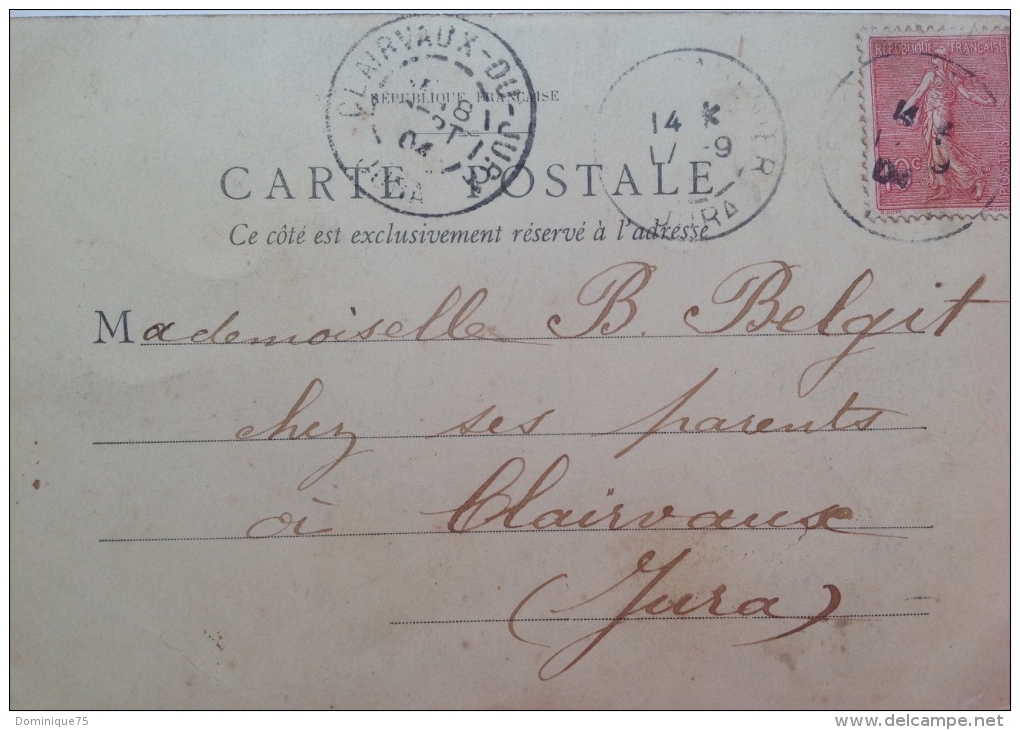 CLAIRVAUX-DU-JURA
04
RÉPUBLIQUE FRANÇAISE
14
9
JURA
RÉPUBLIQUE FRANÇAISE
10c
POSTES
CARTE POSTALE
Ce côté est exclusivement réservé à l'adresse
Mademoiselle B. Belgit
chez ses parents
à Clairvaux
(Jura)
Dominique75
www.delcampe.net